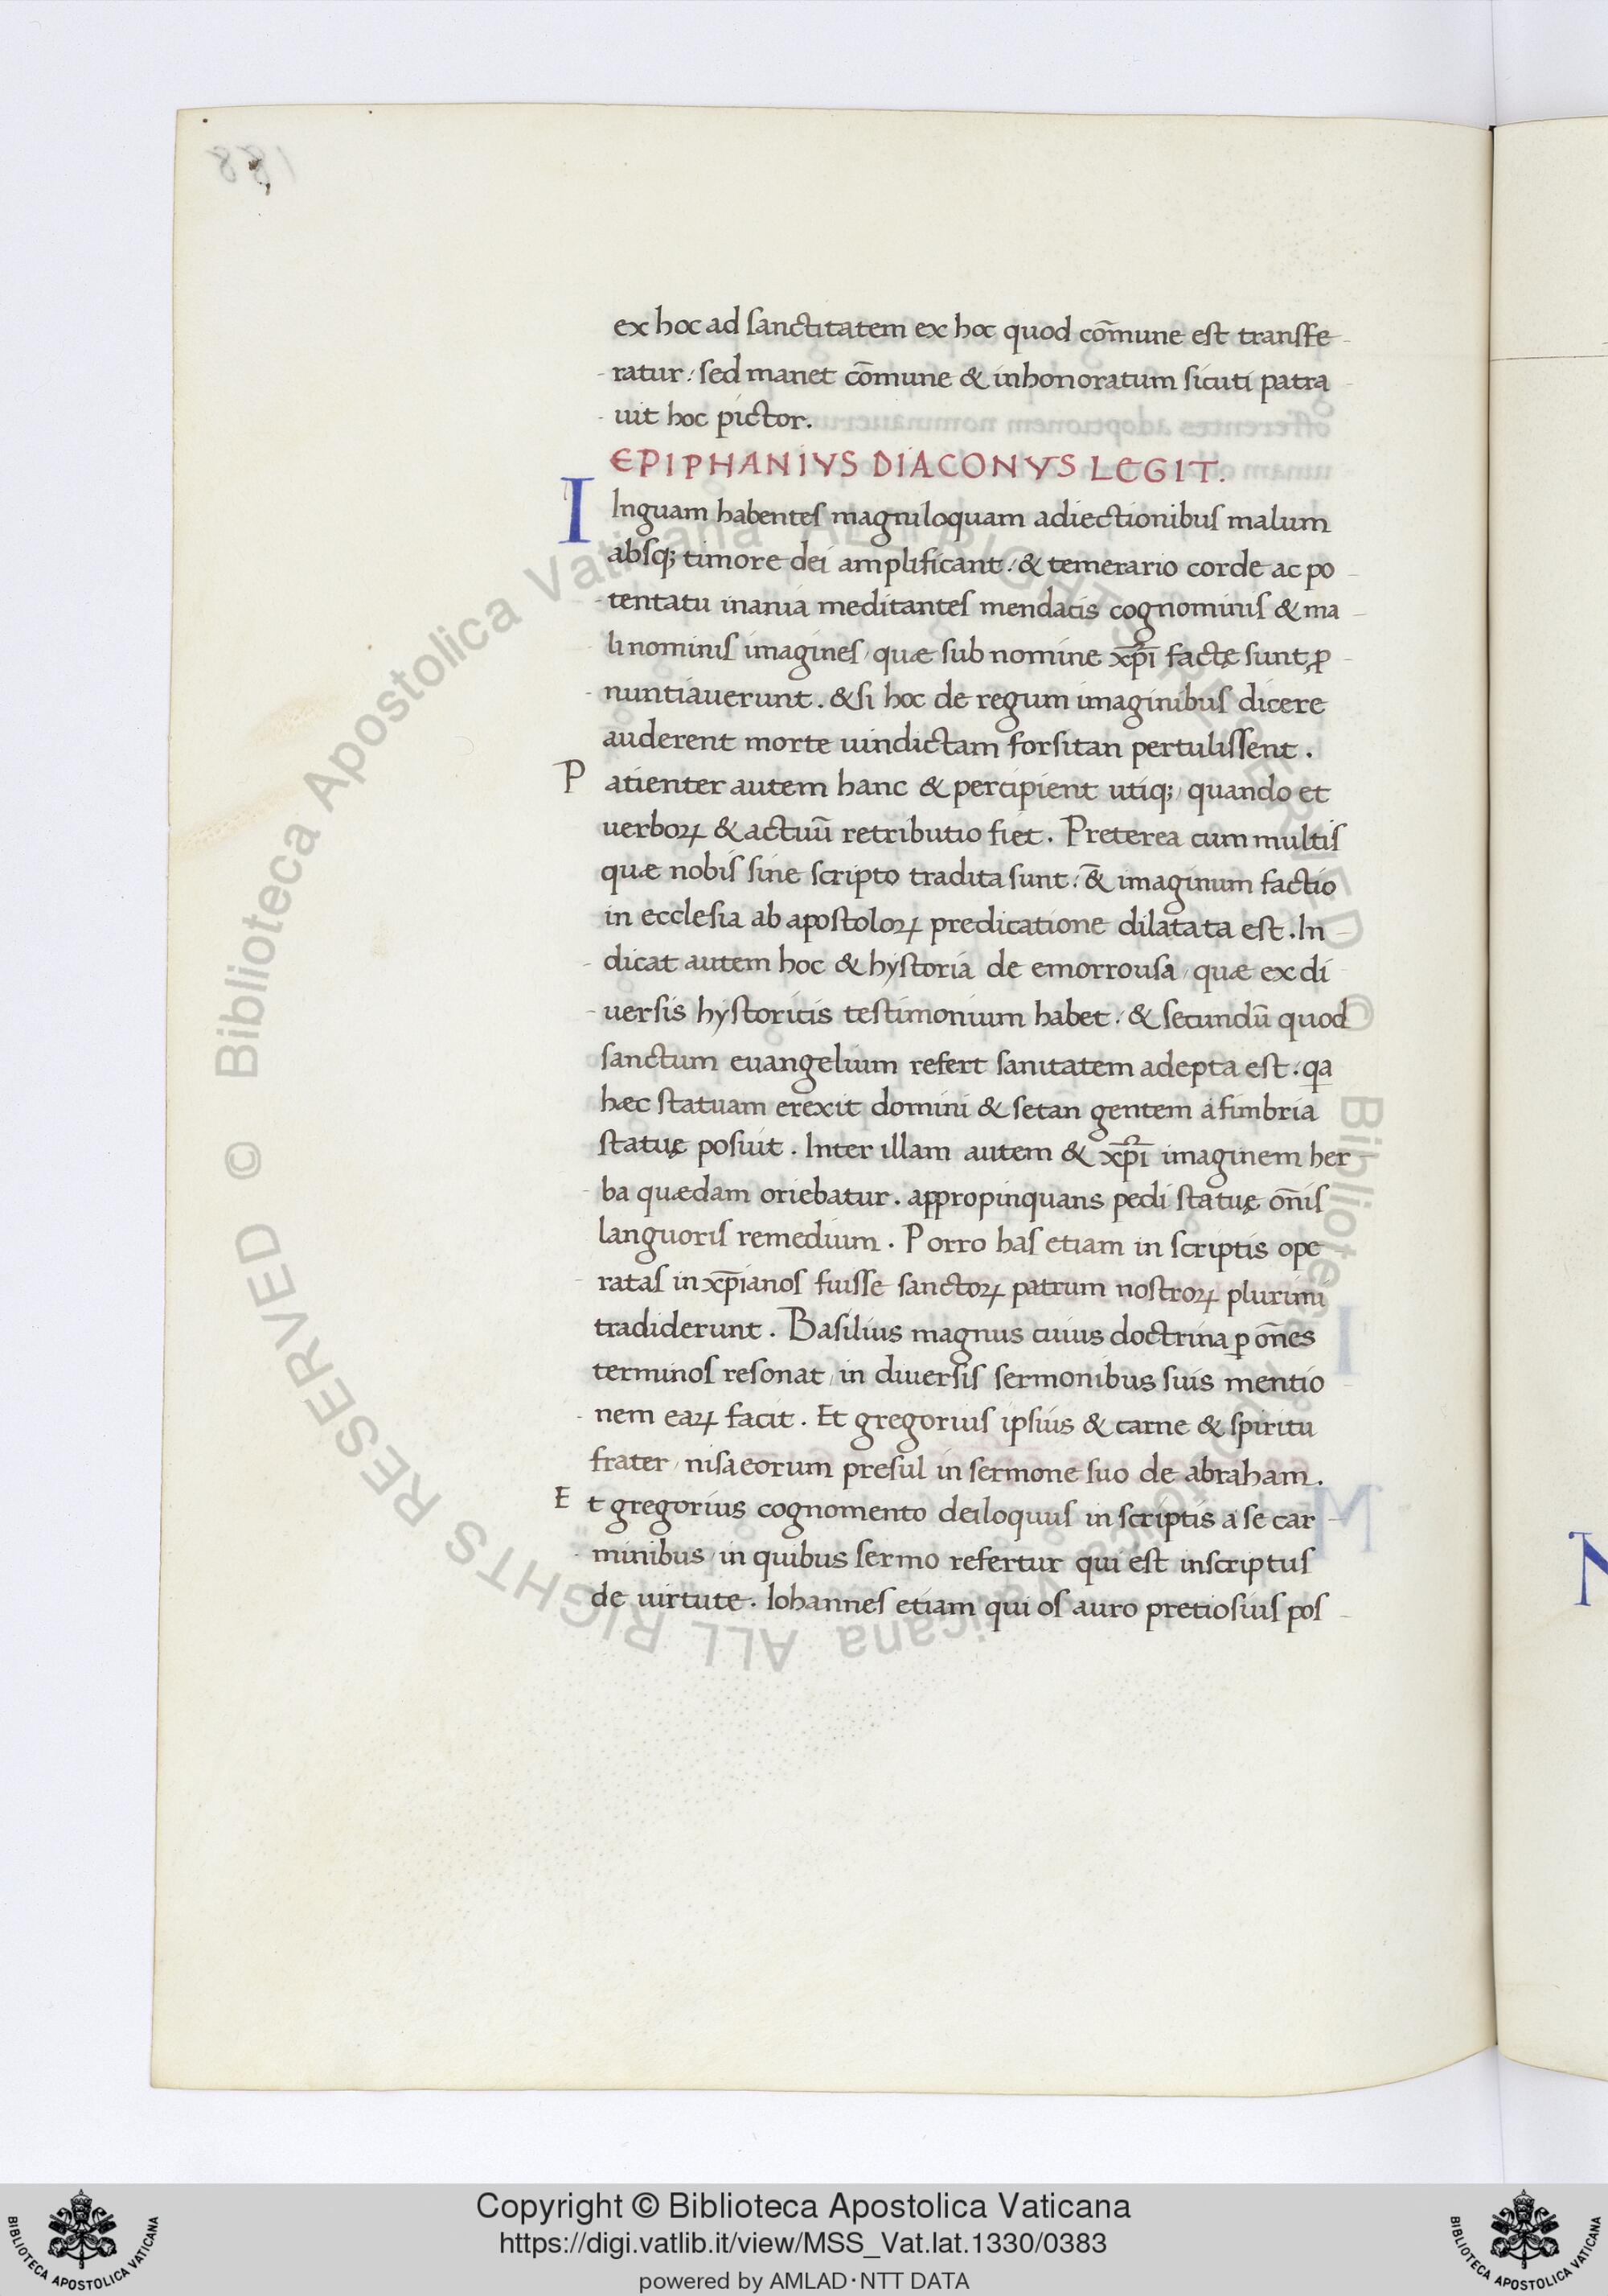 ex hoc ad sanctitatem ex hoc quod com̄une est transfe-
ratur: sed manet com̄une & inhonoratum sicuti patra-
uit hoc pictor.
EPIPHANIVS DIACONVS LEGIT.
I Inguam habentes magniloquam adiectionibus malum
absq; timore dei amplificant: & temerario corde ac po-
tentatu inania meditantes mendacis cognominis & ma-
li nominis imagines, quæ sub nomine xp̄i factę sunt, ꝓ-
nuntiauerunt. & si hoc de regum imaginibus dicere
auderent morte uindictam forsitan pertulissent.
Patienter autem hanc & percipient utiq; quando et
uerboꝝ & actuū retributio fiet. Preterea cum multis
quæ nobis sine scripto tradita sunt: & imaginum factio
in ecclesia ab apostoloꝝ predicatione dilatata est. In-
dicat autem hoc & hystoria de emorrousa, quæ ex di-
uersis hystoricis testimonium habet: & secundū quod
sanctum euangelium refert sanitatem adepta est. qa
hæc statuam erexit domini & se tangentem a fimbria
statuę posuit. Inter illam autem & xp̄i imaginem her-
ba quædam oriebatur. appropinquans pedi statuę om̄is
languoris remedium. Porro has etiam in scriptis ope-
ratas in xp̄ianos fuisse sanctoꝝ patrum nostroꝝ plurimi
tradiderunt. Basilius magnus cuius doctrina ꝑ om̄es
terminos resonat, in diuersis sermonibus suis mentio-
nem eaꝝ facit. Et gregorius ipsius & carne & spiritu
frater, nisaeorum presul in sermone suo de abraham.
Et gregorius cognomento deiloquus in scriptis a se car-
minibus, in quibus sermo refertur qui est inscriptus
de uirtute. Iohannes etiam qui os auro pretiosius pos-
Copyright © Biblioteca Apostolica Vaticana
https://digi.vatlib.it/view/MSS_Vat.lat.1330/0383
powered by AMLAD·NTT DATA
BIBLIOTECA APOSTOLICA VATICANA
BIBLIOTECA APOSTOLICA VATICANA
© Biblioteca Apostolica Vaticana ALL RIGHTS RESERVED © Biblioteca Apostolica Vaticana ALL RIGHTS RESERVED